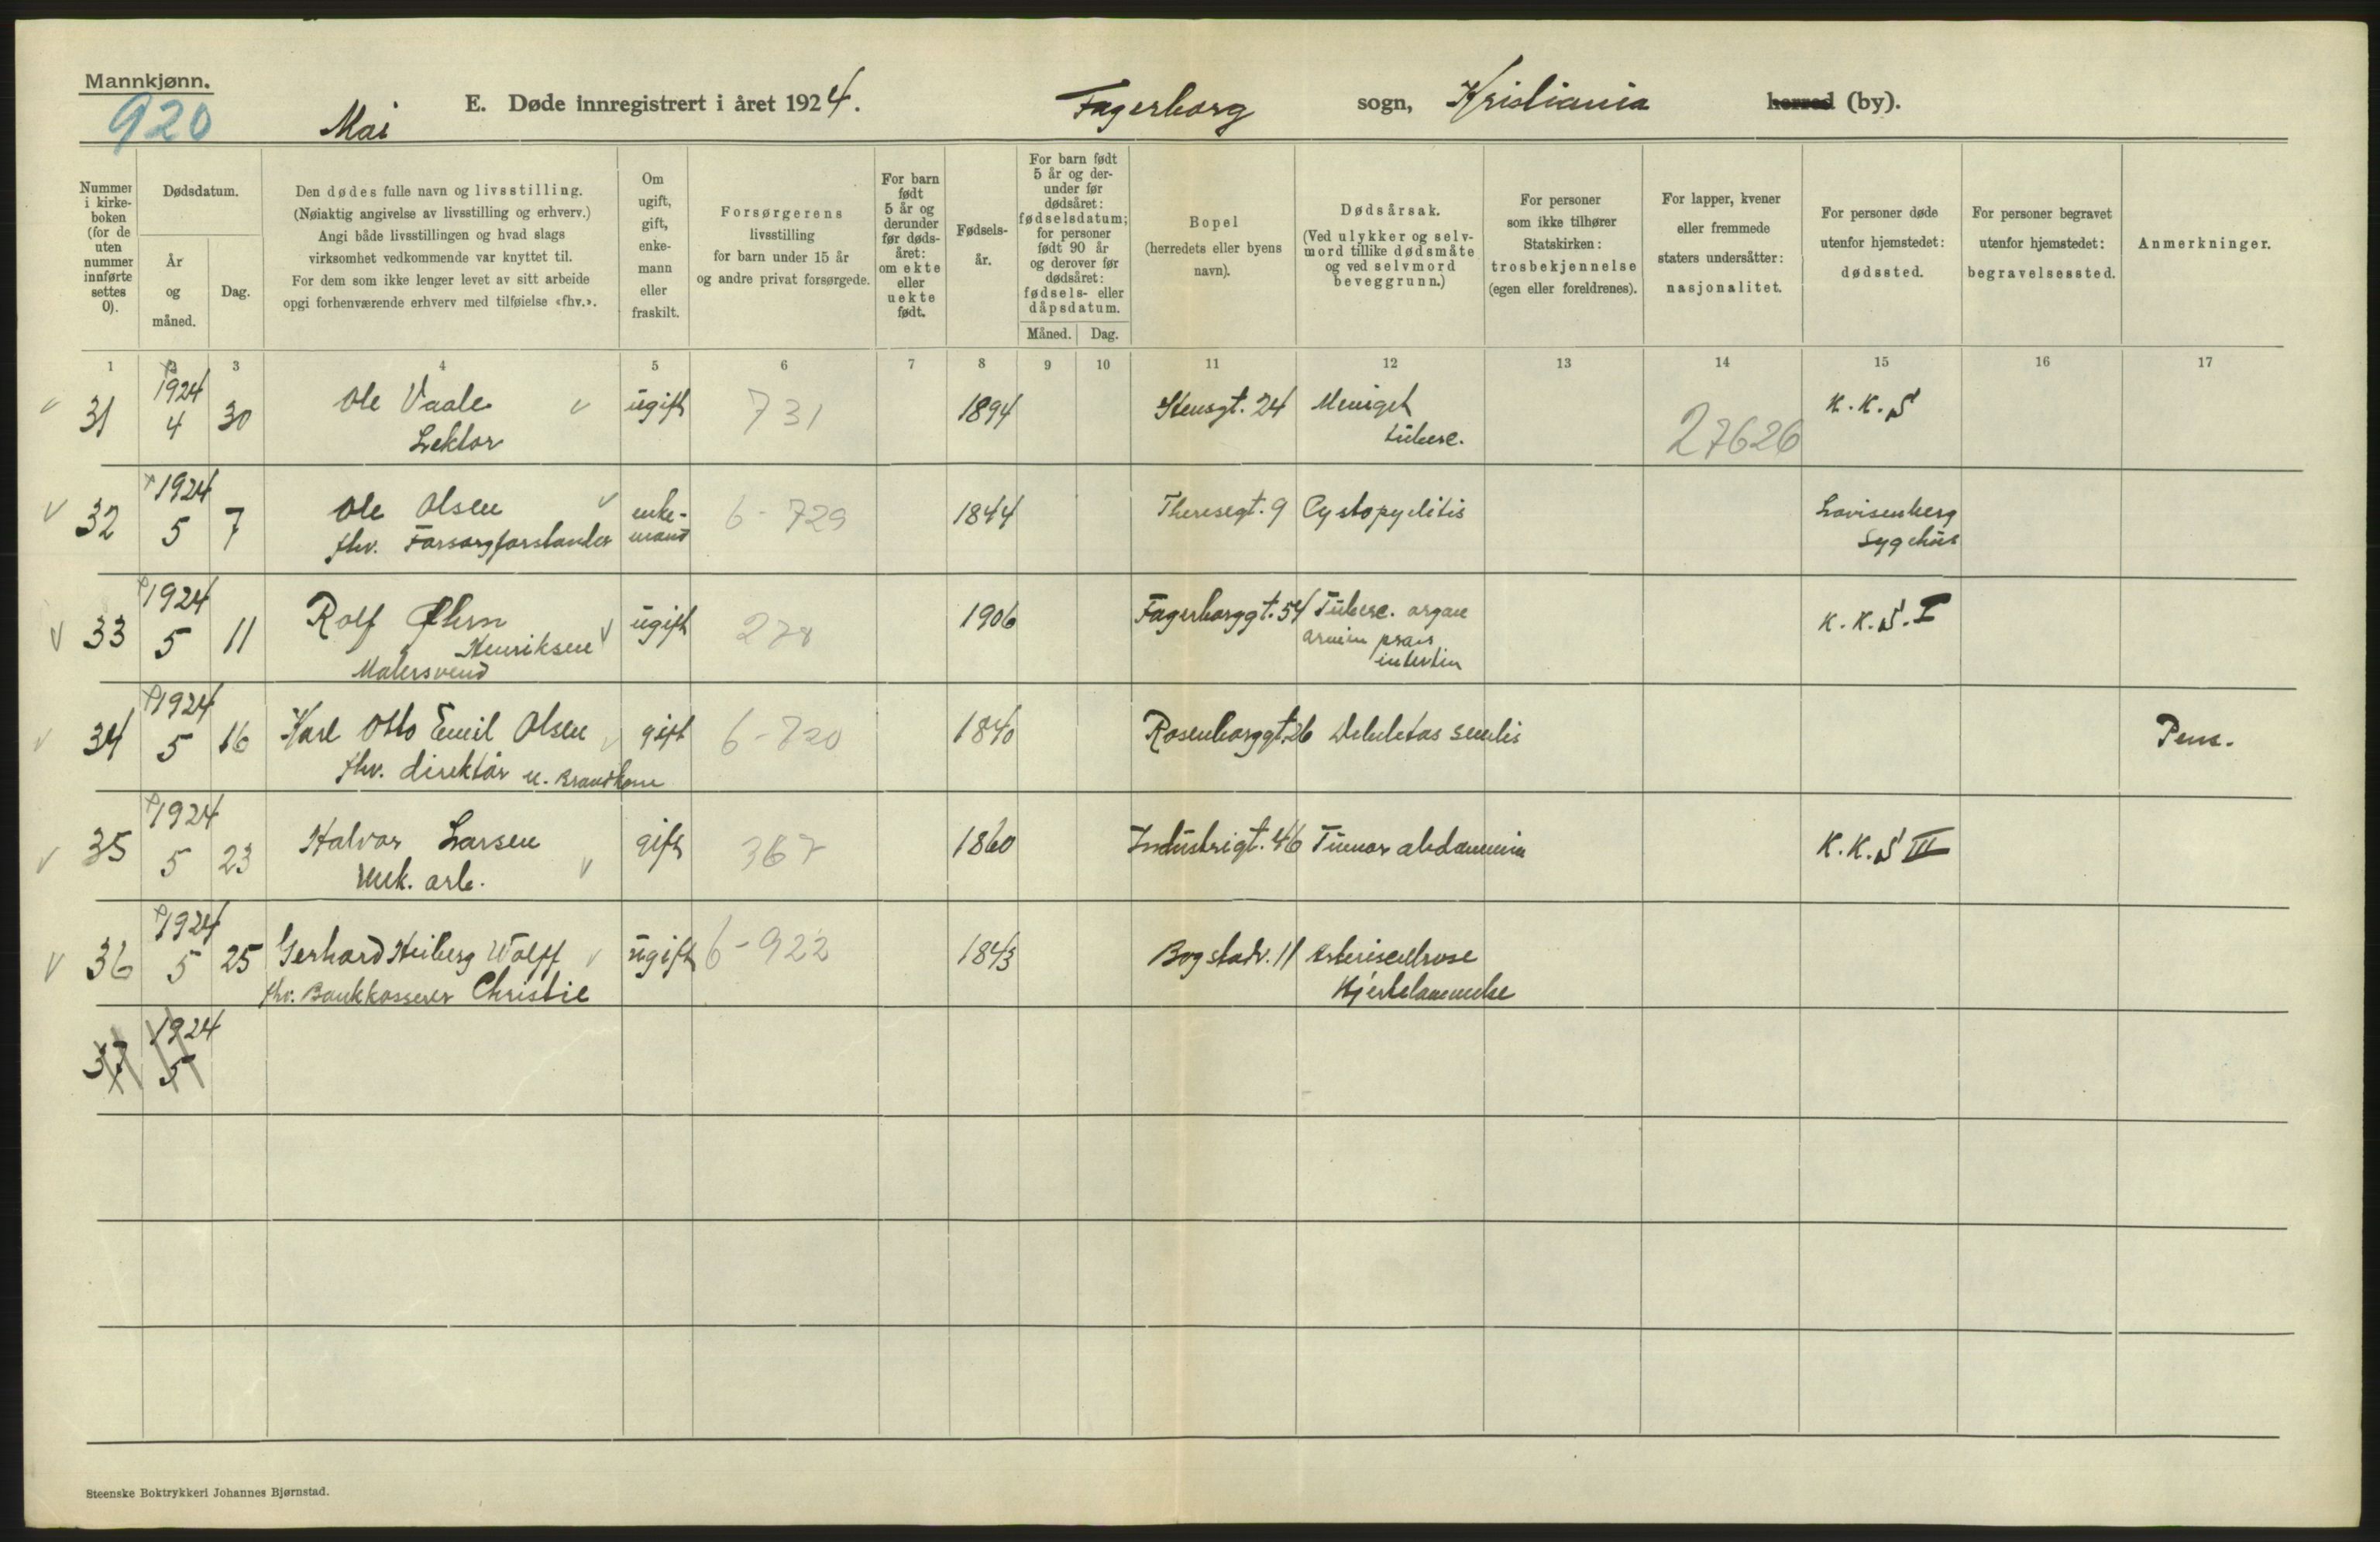 Mannkjønn.
920
Mai
E. Døde innregistrert i året 1924.
Fagerborg sogn, Kristiania herred (by).
Nummer i kirkeboken (for de uten nummer innførte settes 0).
Dødsdatum.
År og måned.
Dag.
Den dødes fulle navn og livsstilling.
(Nøiaktig angivelse av livsstilling og erhverv.)
Angi både livsstillingen og hvad slags
virksomhet vedkommende var knyttet til.
For dem som ikke lenger levet av sitt arbeide
opgi forhenværende erhverv med tilføielse «fhv.».
Om ugift, gift, enkemann eller fraskilt.
Forsørgerens
livsstilling
for barn under 15 år
og andre privat forsørgede.
For barn født 5 år og derunder før dødsåret: om ekte eller uekte født.
Fødselsår.
For barn født 5 år og derunder før dødsåret: fødselsdatum; for personer født 90 år og derover før dødsåret: fødsels- eller dåpsdatum.
Måned. Dag.
Bopel
(herredets eller byens navn).
Dødsårsak.
(Ved ulykker og selvmord tillike dødsmåte og ved selvmord beveggrunn.)
For personer
som ikke tilhører
Statskirken:
trosbekjennelse
(egen eller foreldrenes).
For lapper, kvener
eller fremmede
staters undersåtter:
nasjonalitet.
For personer døde
utenfor hjemstedet:
dødssted.
For personer begravet
utenfor hjemstedet:
begravelsessted.
Anmerkninger.
1 2 3 4 5 6 7 8 9 10 11 12 13 14 15 16 17
31 1924 4 30 Ole Vaale ugift 731 1894 Stensgt. 24 Meningit K.K.S
Lektor tuberc. 27626
32 1924 5 7 Ole Olsen enke- 6-729 1844 Theresegt. 9 Cystopyelitis Lovisenberg
fhv. Forsorgforstander mand Sygehus
33 1924 5 11 Rolf Øhrn ugift 278 1906 Fagerborggt. 54 Tuberc. organ K.K.S. I
Henriksen
Malersvend
34 1924 5 16 Karl Otto Emil Olsen gift 6-720 1840 Rosenborggt. 26 Debilitas senilis Pens.
fhv. direktør
35 1924 5 23 Halvor Larsen gift 367 1860 Industrigt. 46 Tumor abdominis K.K.S III
Mek. arb.
36 1924 5 25 Gerhard Heiberg Wolff ugift 6-922 1843 Bogstadv. 11 Arteriosclerose
fhv. Bankkasserer Christie Hjertelammelse
37 1924 5
Steenske Boktrykkeri Johannes Bjørnstad.